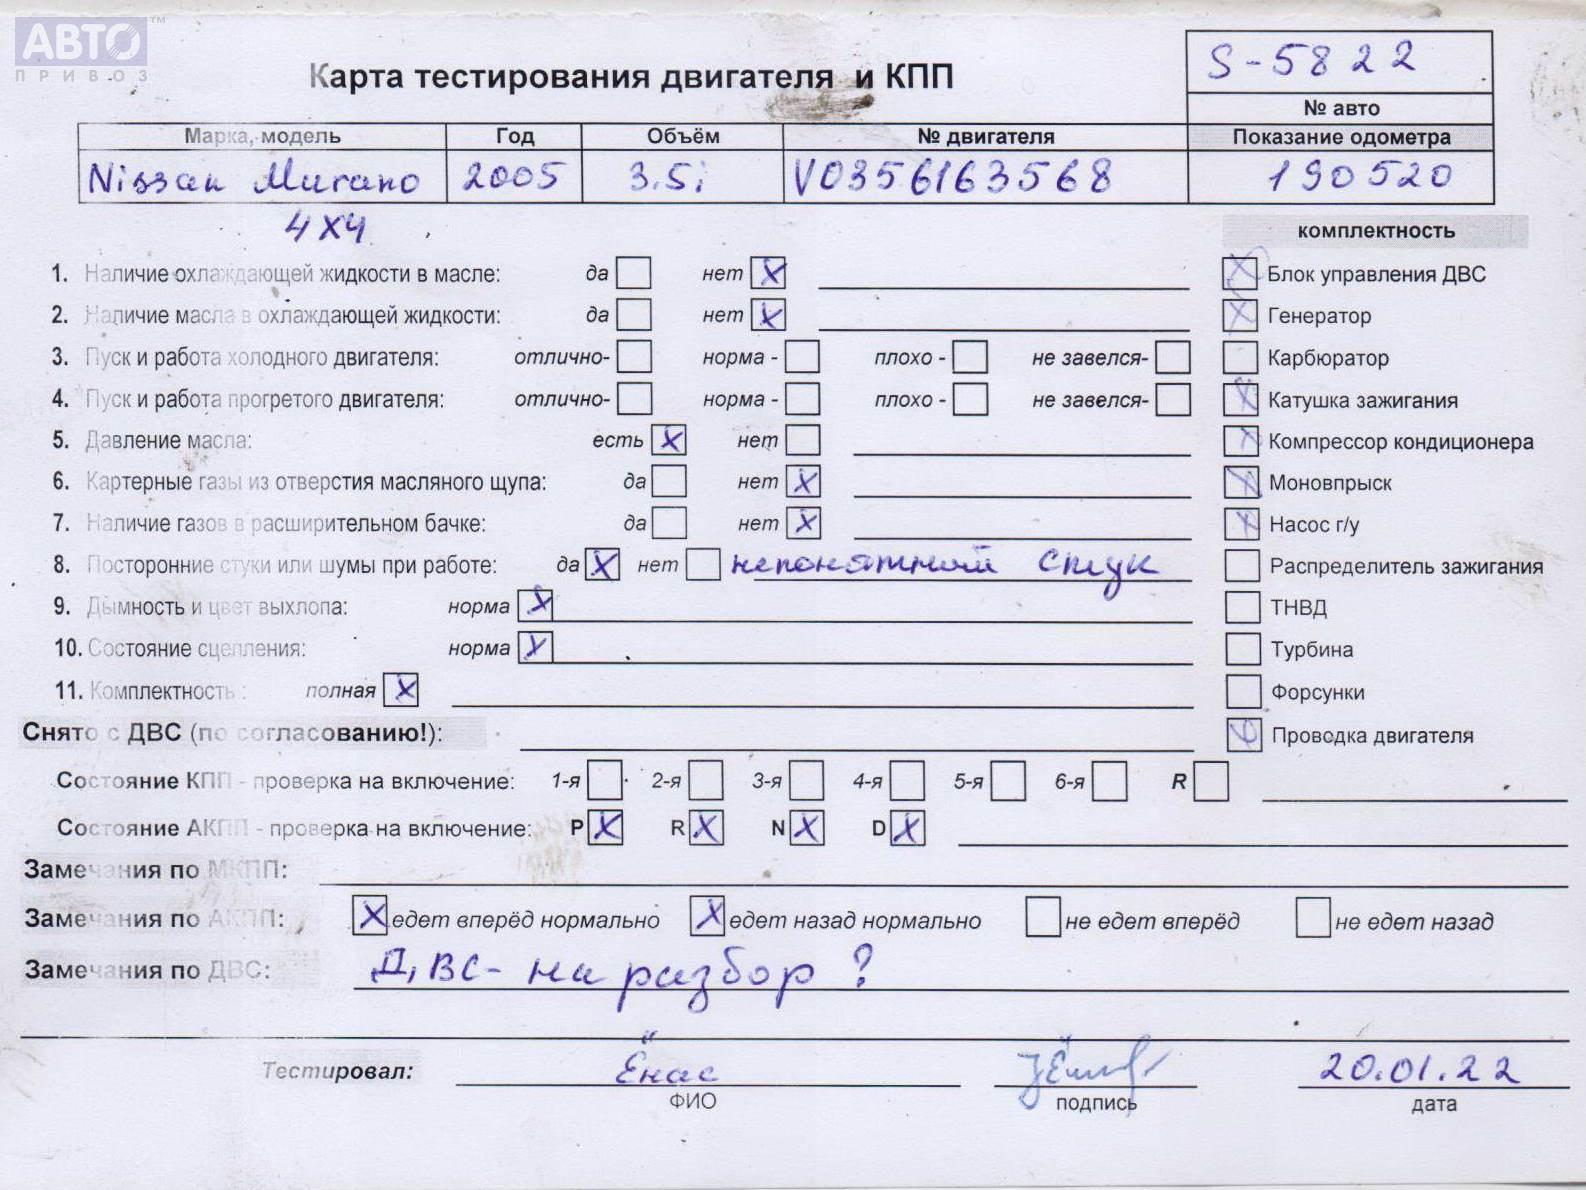 АВТО™
ПРИВОЗ
S-5822
Карта тестирования двигателя и КПП
№ авто
Марка, модель Год Объём № двигателя Показание одометра
Nissan Murano 2005 3.5i V0356163568 190520
4x4
комплектность
1. Наличие охлаждающей жидкости в масле: да нет X
X Блок управления ДВС
2. Наличие масла в охлаждающей жидкости: да нет X
X Генератор
3. Пуск и работа холодного двигателя: отлично- норма - плохо - не завелся-
Карбюратор
4. Пуск и работа прогретого двигателя: отлично- норма - плохо - не завелся-
X Катушка зажигания
5. Давление масла: есть X нет
X Компрессор кондиционера
6. Картерные газы из отверстия масляного щупа: да нет X
X Моновпрыск
7. Наличие газов в расширительном бачке: да нет X
X Насос г/у
8. Посторонние стуки или шумы при работе: да X нет непонятный стук
Распределитель зажигания
9. Дымность и цвет выхлопа: норма X
ТНВД
10. Состояние сцепления: норма X
Турбина
11. Комплектность : полная X
Форсунки
Снято с ДВС (по согласованию!):
X Проводка двигателя
Состояние КПП - проверка на включение: 1-я 2-я 3-я 4-я 5-я 6-я R
Состояние АКПП - проверка на включение: P X R X N X D X
Замечания по МКПП:
Замечания по АКПП: X едет вперёд нормально X едет назад нормально не едет вперёд не едет назад
Замечания по ДВС: ДВС - на разбор ?
Тестировал: Ёнас 20.01.22
ФИО подпись дата